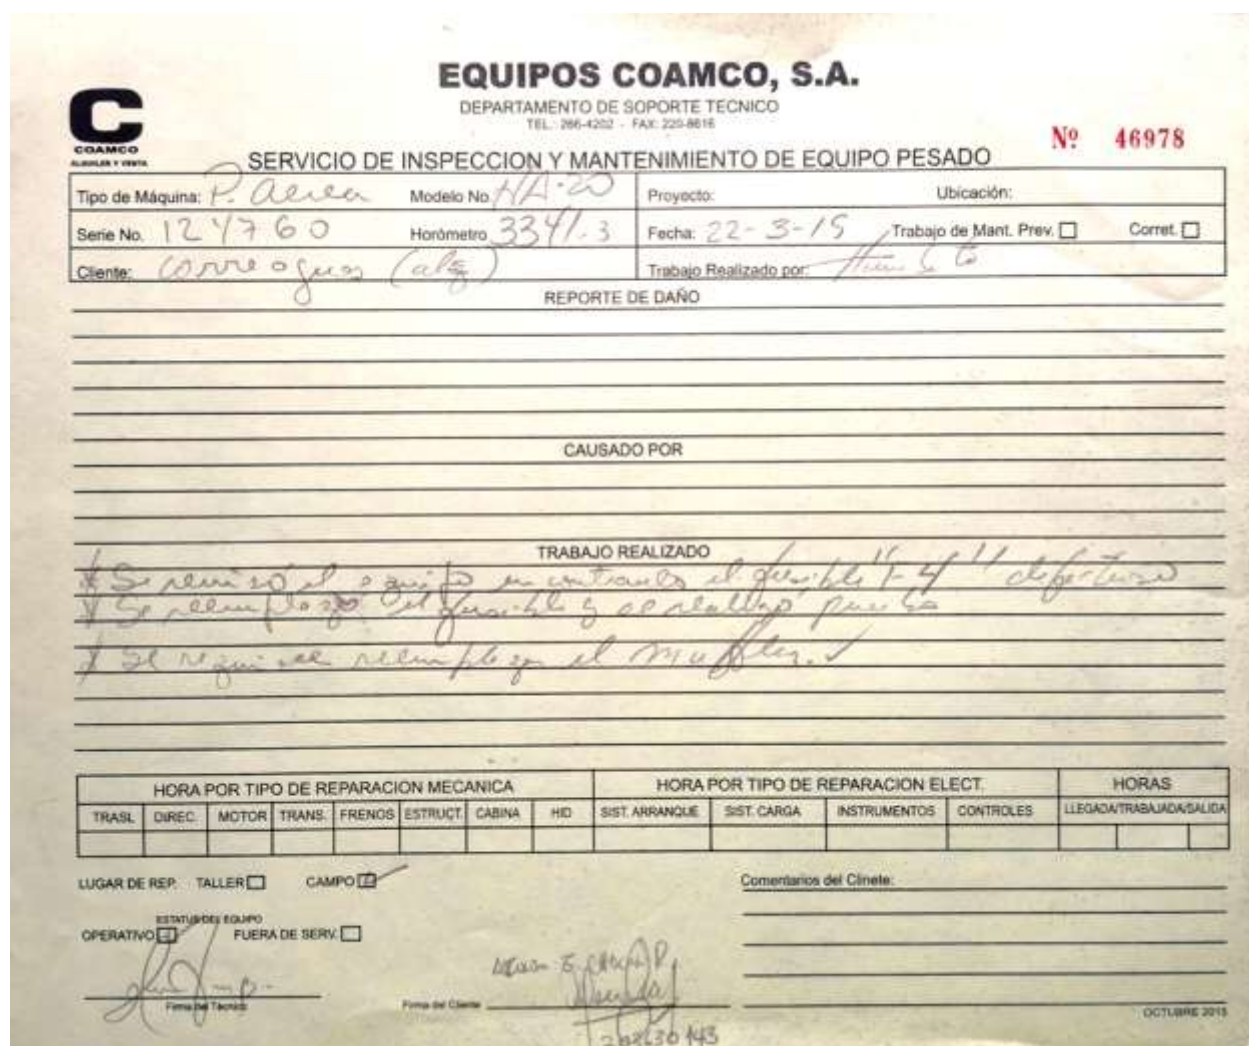 EQUIPOS COAMCO, S.A.
DEPARTAMENTO DE SOPORTE TECNICO
TEL.: 266-4202 - FAX: 220-8616
COAMCO
ALQUILER Y VENTA
Nº 46978
SERVICIO DE INSPECCION Y MANTENIMIENTO DE EQUIPO PESADO
Tipo de Máquina: P. aerea Modelo No. HA-20 Proyecto: Ubicación:
Serie No. 124760 Horómetro 3341.3 Fecha: 22-3-15 Trabajo de Mant. Prev. Corret.
Cliente: correaguas (alq) Trabajo Realizado por: Humberto
REPORTE DE DAÑO
CAUSADO POR
TRABAJO REALIZADO
* Se revisó el equipo encontrando el fusible "F4" defectuoso
* Se reemplazo el fusible y se realizó prueba
* Se requiere reemplazar el muffler. ✓
HORA POR TIPO DE REPARACION MECANICA HORA POR TIPO DE REPARACION ELECT. HORAS
TRASL DIREC. MOTOR TRANS. FRENOS ESTRUCT. CABINA HID SIST. ARRANQUE SIST. CARGA INSTRUMENTOS CONTROLES LLEGADA/TRABAJADA/SALIDA
LUGAR DE REP. TALLER CAMPO
Comentarios del Clinete:
ESTATUS DEL EQUIPO
OPERATIVO FUERA DE SERV.
Firma del Técnico
Firma del Cliente
OCTUBRE 2015